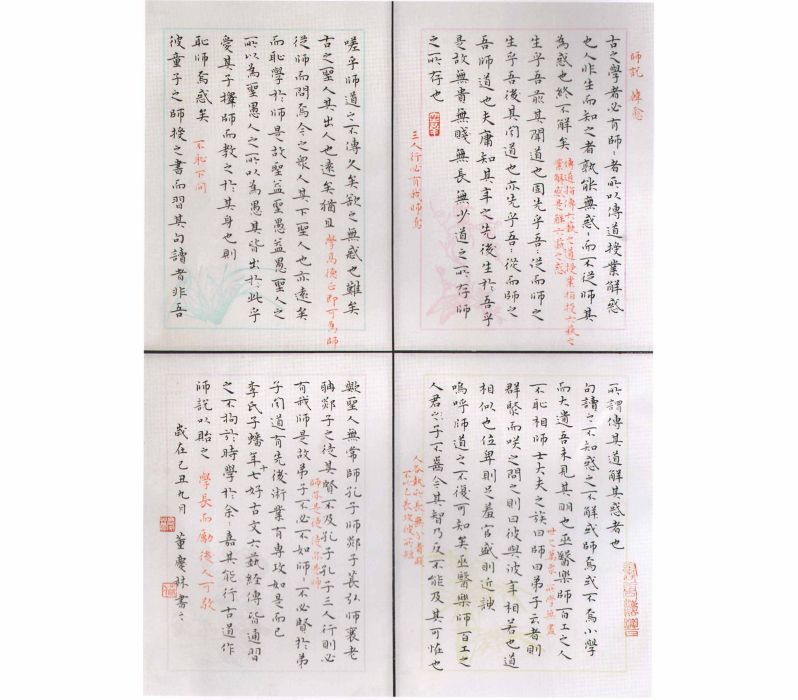 師說 韓愈
古之學者必有師〻者所以傳道授業解惑
也人非生而知之者孰能無惑〻而不從師其
為惑也終不解矣
傳道指傳六藝之道授業指授六藝之
業解惑是解六藝之惑
生乎吾前其聞道也固先乎吾〻從而師之
生乎吾後其聞道也亦先乎吾〻從而師之
吾師道也夫庸知其年之先後生於吾乎
是故無貴無賤無長無少道之所存師
之所存也
三人行必有我師焉
嗟乎師道之不傳久矣欲之無惑也難矣
古之聖人其出人也遠矣猶且
學高德正即可為師
從師而問焉今之眾人其下聖人也亦遠矣
而恥學於師是故聖益聖愚益愚聖人之
所以為聖愚人之所以為愚其皆出於此乎
愛其子擇師而教之於其身也則
恥師焉惑矣 不恥下問
彼童子之師授之書而習其句讀者非吾
所謂傳其道解其惑者也
句讀之不知惑之不解或師焉或不焉小學
而大遺吾未見其明也巫醫樂師百工之人
不恥相師士大夫之族曰師曰弟子云者則
群聚而咲之問之則曰彼與彼年相若也道
相似也位卑則足羞官盛則近諛
嗚呼師道之不復可知矣巫醫樂師百工之
人君〻子不齒今其智乃反不能及其可怪也
歟聖人無常師孔子師郯子萇弘師襄老
聃郯子之徒其賢不及孔子孔子三人行則必
有我師是故弟子不必不如師〻不必賢於弟
師亦是徒徒亦師
子聞道有先後術業有專攻如是而已
李氏子蟠年十七好古文六藝經傳皆通習
之不拘於時學於余〻嘉其能行古道作
師說以貽之 學長而勵後人可敬
歲在己丑九月 董慶林書〻